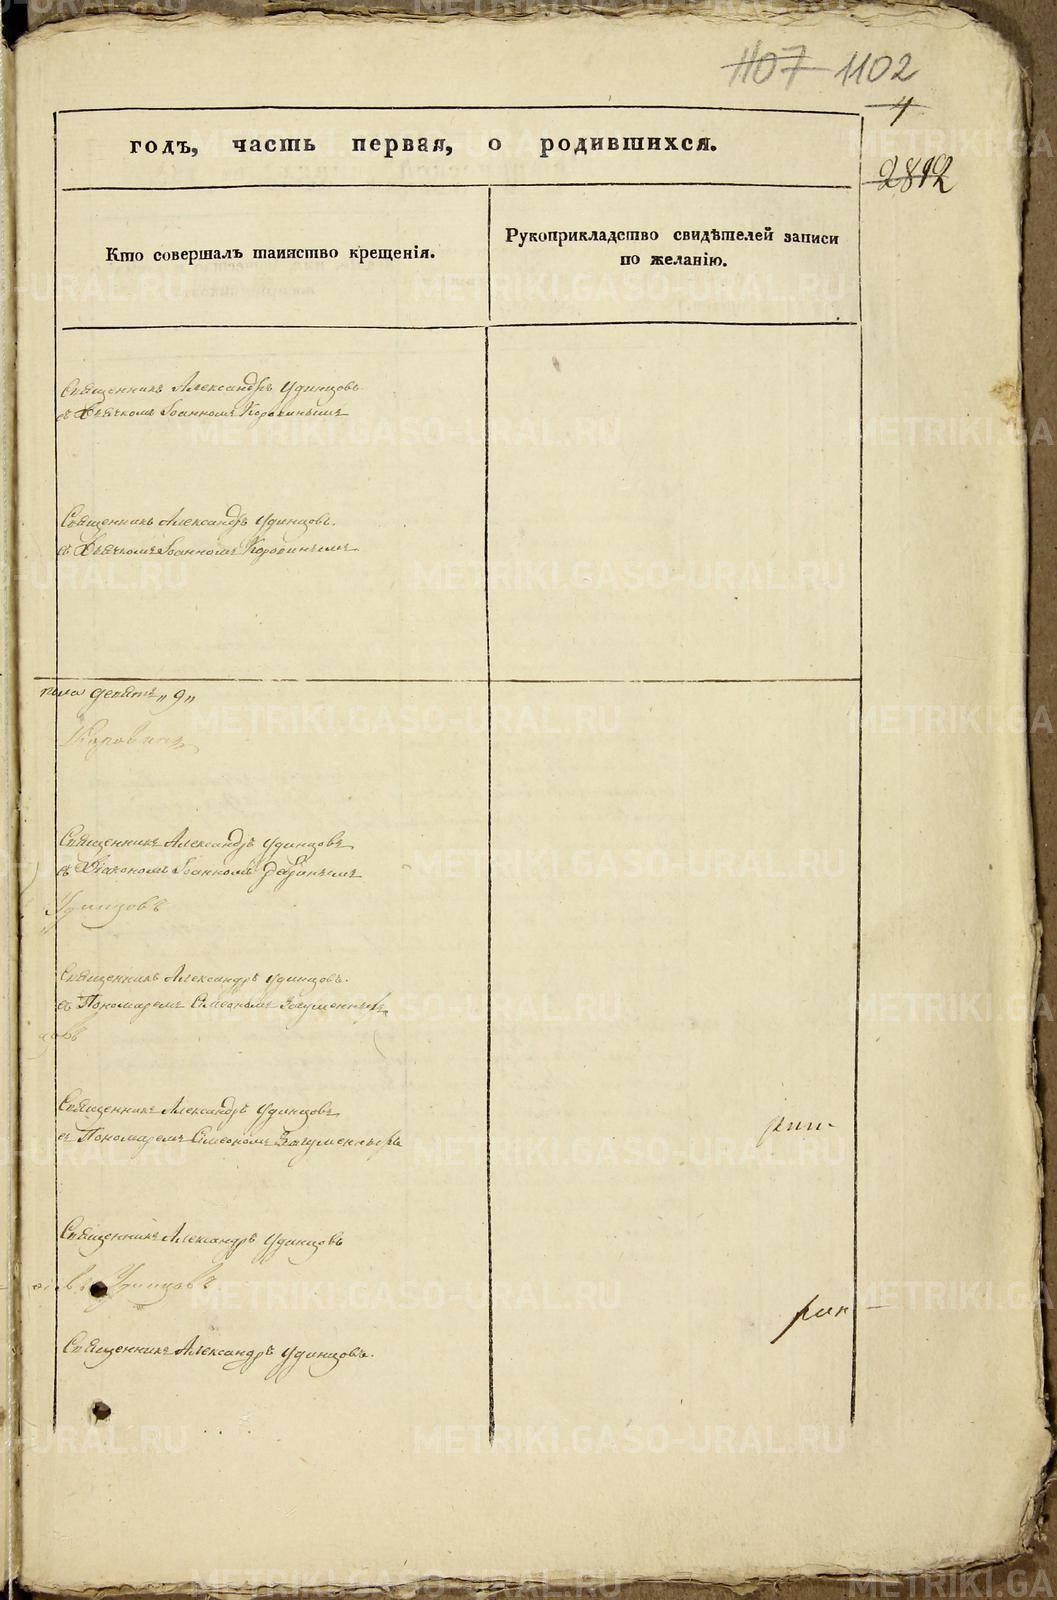 1107 1102
4
2812
годъ, часть первая, о родившихся.
Кто совершалъ таинство крещенія.
Рукоприкладство свидѣтелей записи
по желанію.
Священникъ Александръ Удинцовъ
съ Дьячкомъ Іоанномъ Коровинымъ
Священникъ Александръ Удинцовъ.
съ Дьячкомъ Іоанномъ Коровинымъ
девять "9"
Коровинъ
Священникъ Александръ Удинцовъ
съ Діакономъ Іоанномъ
Удинцовъ
Священникъ Александръ Удинцовъ.
съ Пономаремъ Симеономъ Загуменныхъ
цовъ
Священникъ Александръ Удинцовъ
съ Пономаремъ Симеономъ Загуменныхъ
Священникъ Александръ Удинцовъ
Удинцовъ
Священникъ Александръ Удинцовъ.
METRIKI.GASO-URAL.RU